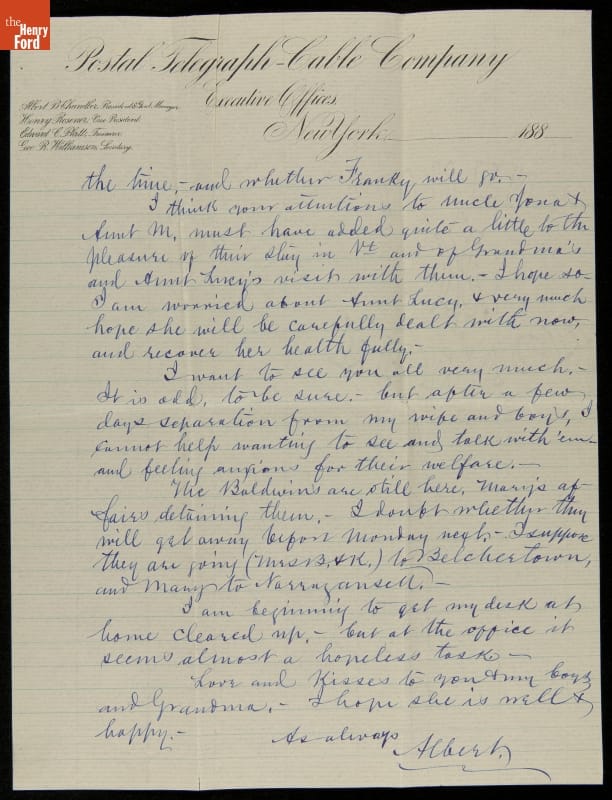 the Henry Ford
Postal Telegraph-Cable Company
Executive Offices,
Albert B. Chandler, President & Genl. Manager.
Henry Rosener, Vice President.
Edward C. Platt, Treasurer.
Geo. R. Williamson, Secretary.
New York 188
the time,- and whether Franky will go.-
I think your attentions to Uncle Yona &
Aunt M. must have added quite a little to the
pleasure of their stay in Vt and of Grandma's
and Aunt Lucy's visit with them.- I hope so.
I am worried about Aunt Lucy, & very much
hope she will be carefully dealt with now,
and recover her health fully.-
I want to see you all very much.-
It is odd, to be sure.- but after a few
days separation from my wife and boys, I
cannot help wanting to see and talk with 'em-
and feeling anxious for their welfare.-
The Baldwin's are still here, Mary's af-
fairs detaining them.- I doubt whether they
will get away before Monday next.- I suppose
they are going (Mrs B. & K.) to Belchertown,
and Mary to Narragansett.-
I am beginning to get my desk at
home cleared up,- but at the office it
seems almost a hopeless task-
Love and Kisses to you & my boys
and Grandma.- I hope she is well &
happy.-
As always
Albert.